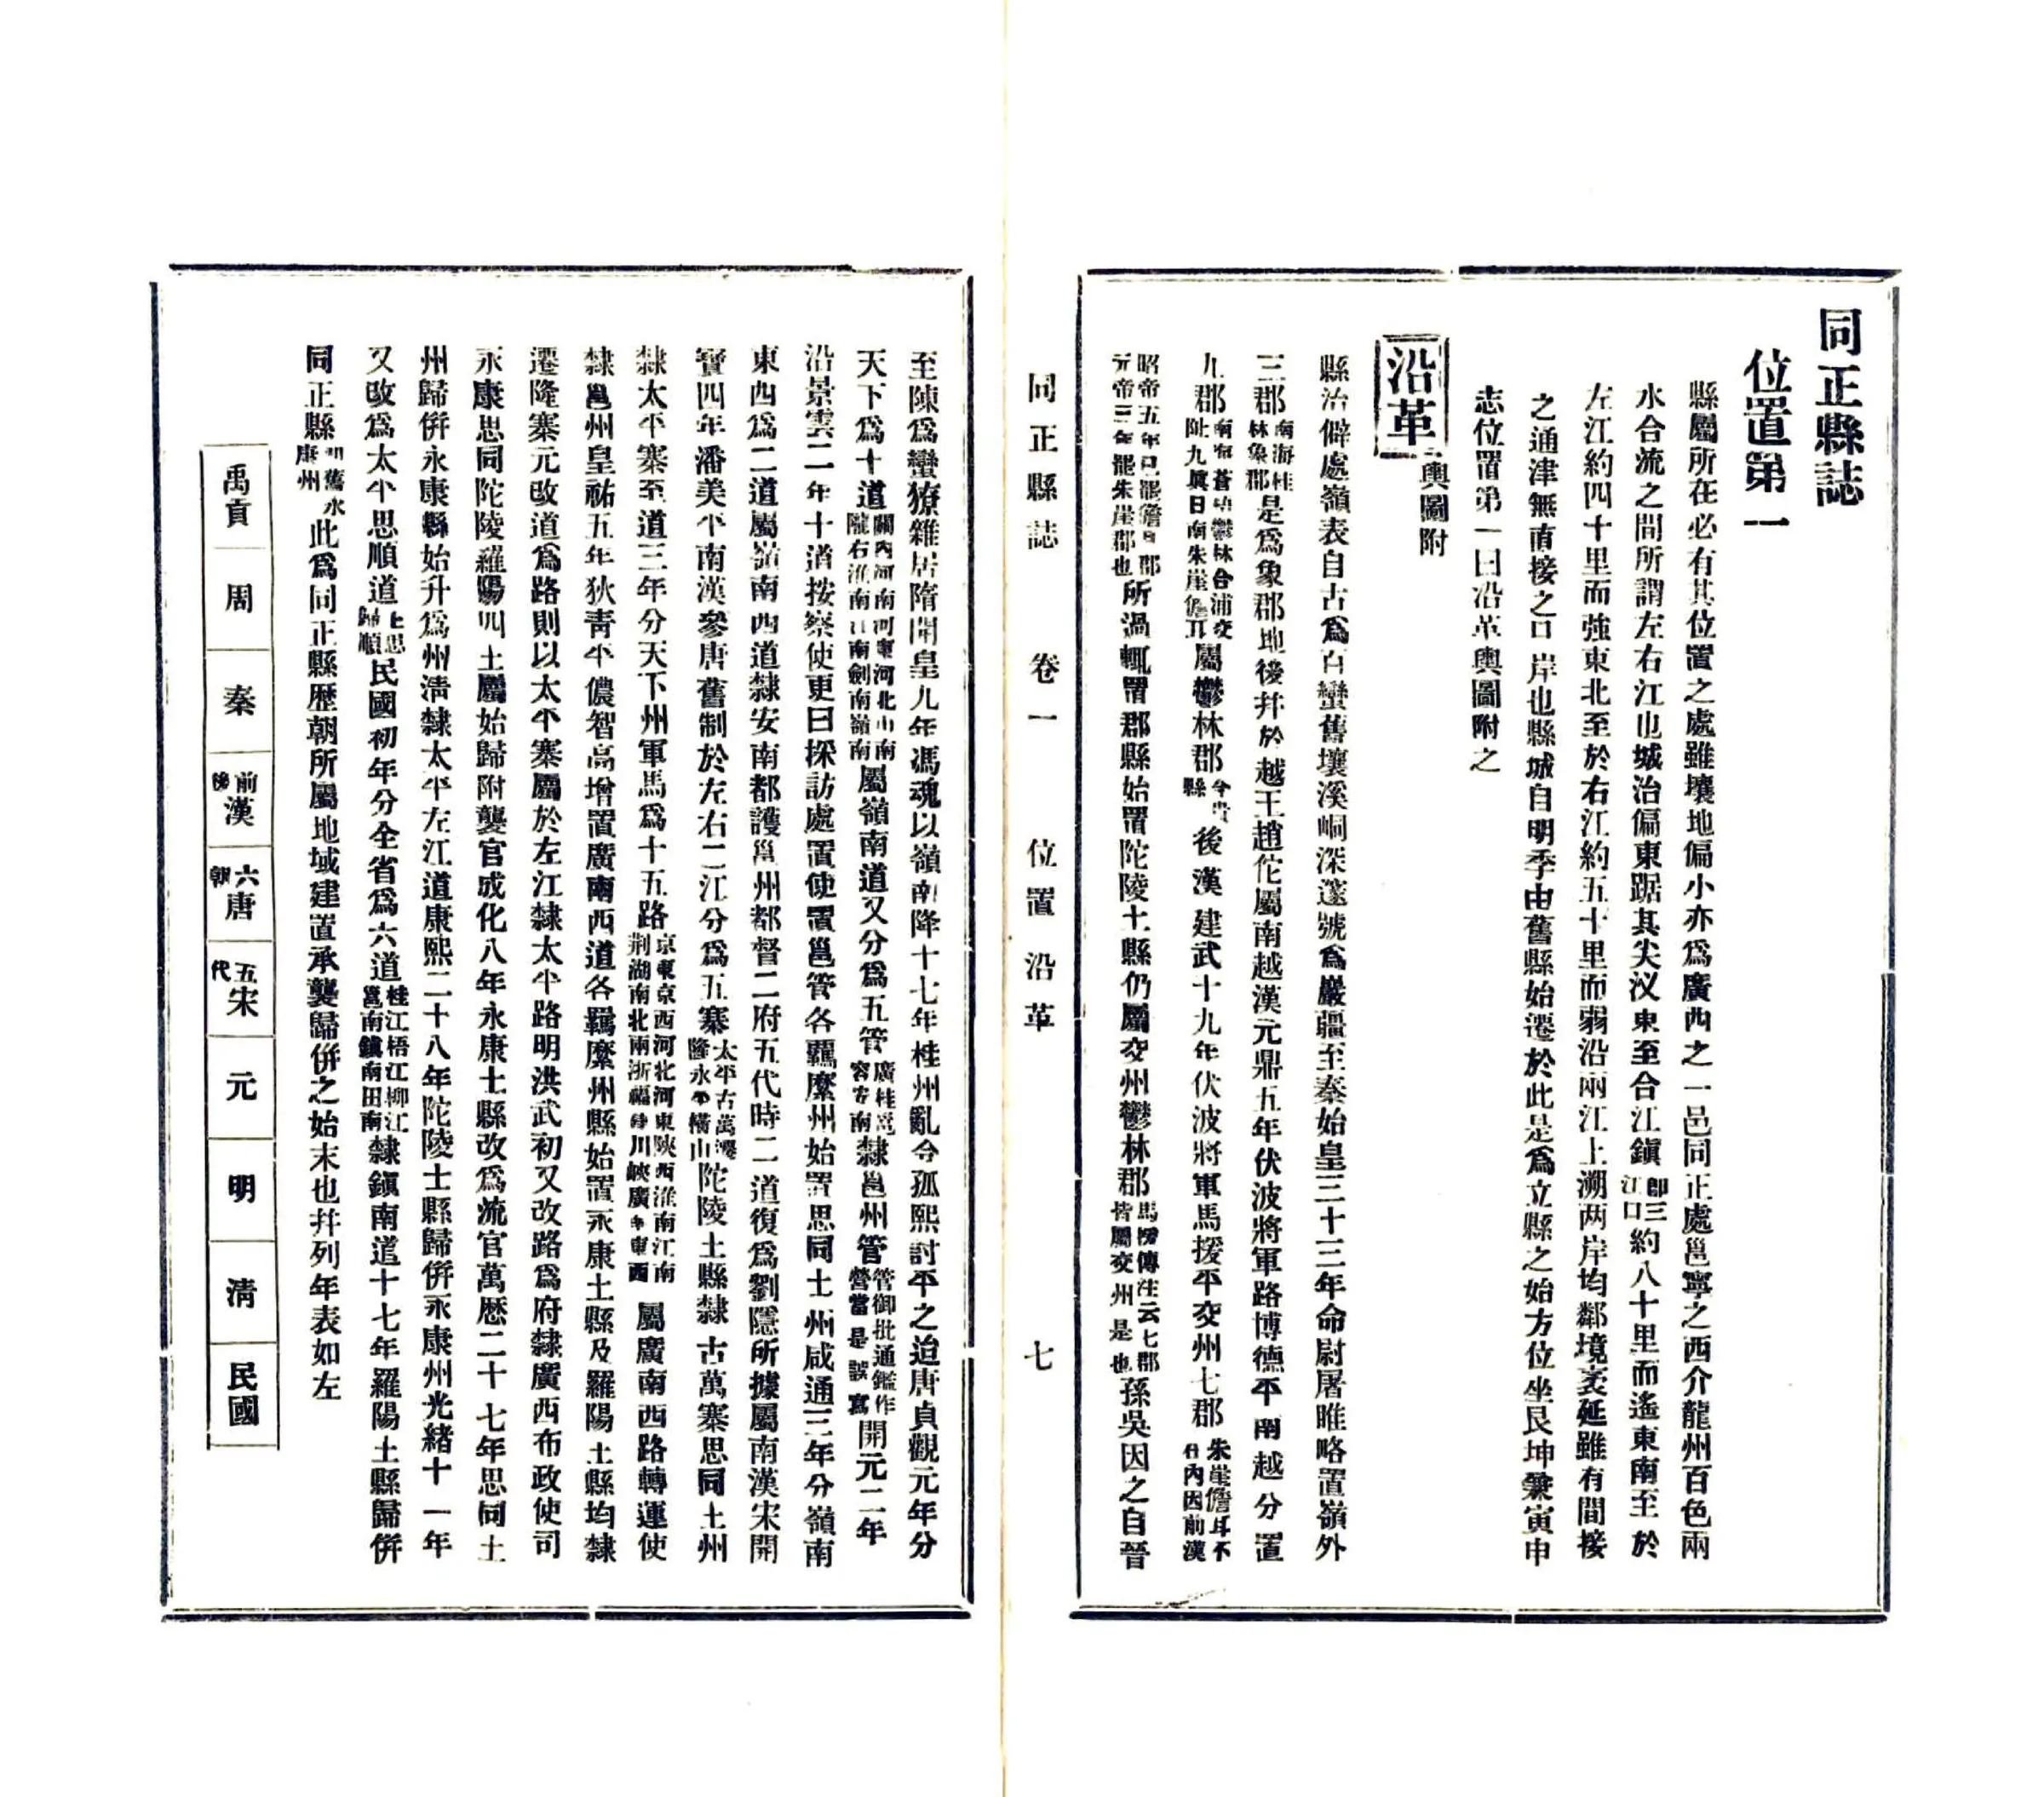 同正縣誌
位置第一
縣屬所在必有其位置之處雖壤地偏小亦爲廣西之一邑同正處邕寧之西介龍州百色兩
水合流之間所謂左右江也城治偏東踞其尖汊東至合江鎭卽三江口約八十里而遙東南至於
左江約四十里而強東北至於右江約五十里而弱沿兩江上溯两岸均鄰境袤延雖有間接
之通津無直接之口岸也縣城自明季由舊縣始遷於此是爲立縣之始方位坐艮坤兼寅申
志位置第一曰沿革輿圖附之
沿革 輿圖附
縣治僻處嶺表自古爲百蠻舊壤溪峒深邃號爲巖疆至秦始皇三十三年命尉屠睢略置嶺外
三郡南海桂林象郡是爲象郡地後幷於越王趙佗屬南越漢元鼎五年伏波將軍路博德平南越分置
九郡南海蒼梧鬱林合浦交阯九眞日南朱崖儋耳屬鬱林郡今貴縣後漢建武十九年伏波將軍馬援平交州七郡朱崖儋耳不在內因前漢
昭帝五年已罷儋耳郡元帝三年罷朱崖郡也所過輒置郡縣始置陀陵土縣仍屬交州鬱林郡馬援傳注云七郡皆屬交州是也孫吳因之自晉
同正縣誌 卷一 位置 沿革 七
至陳爲蠻獠雜居隋開皇九年馮魂以嶺南降十七年桂州亂令孤熙討平之迨唐貞觀元年分
天下爲十道關內河南河東河北山南隴右淮南江南劍南嶺南屬嶺南道又分爲五管廣桂邕容安南隸邕州管管御批通鑑作營當是誤寫開元二年
沿景雲二年十道按察使更曰採訪處置使置邕管各羈縻州始置思同土州咸通三年分嶺南
東西爲二道屬嶺南西道隸安南都護邕州都督二府五代時二道復爲劉隱所據屬南漢宋開
寶四年潘美平南漢參唐舊制於左右二江分爲五寨太平古萬遷隆永平橫山陀陵土縣隸古萬寨思同土州
隸太平寨至道三年分天下州軍馬爲十五路京東京西河北河東陝西淮南江南荆湖南北兩浙福建川峽廣南東西屬廣南西路轉運使
隸邕州皇祐五年狄靑平儂智高增置廣南西道各羈縻州縣始置永康土縣及羅陽土縣均隸
遷隆寨元改道爲路則以太平寨屬於左江隸太平路明洪武初又改路爲府隸廣西布政使司
永康思同陀陵羅陽四土屬始歸附襲官成化八年永康土縣改爲流官萬歷二十七年思同土
州歸併永康縣始升爲州淸隸太平左江道康熙二十八年陀陵土縣歸併永康州光緒十一年
又改爲太平思順道上思歸順民國初年分全省爲六道桂江梧江柳江邕南鎭南田南隸鎭南道十七年羅陽土縣歸併
同正縣卽舊永康州此爲同正縣歷朝所屬地域建置承襲歸併之始末也幷列年表如左
禹貢
周
秦
前後漢
六朝唐
五代宋
元
明
淸
民國